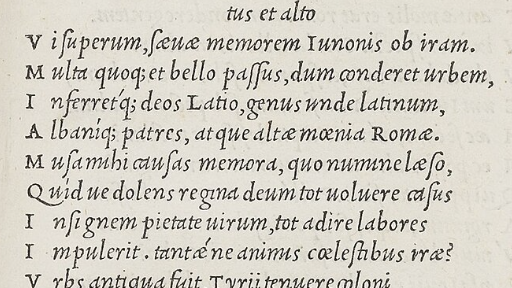 tus et alto
V i superum, sæuæ memorem Iunonis ob iram.
M ulta quoq; et bello passus, dum conderet urbem,
I nferretq́; deos Latio, genus unde latinum,
A lbaniq́; patres, atque altæ mœnia Romæ.
M usa mihi causas memora, quo numine læso,
Q uid ue dolens regina deum tot uoluere casus
I nsignem pietate uirum, tot adire labores
I mpulerit. tantæ´ne animis cœlestibus iræ?
V rbs antiqua fuit, Tyrii tenuere coloni